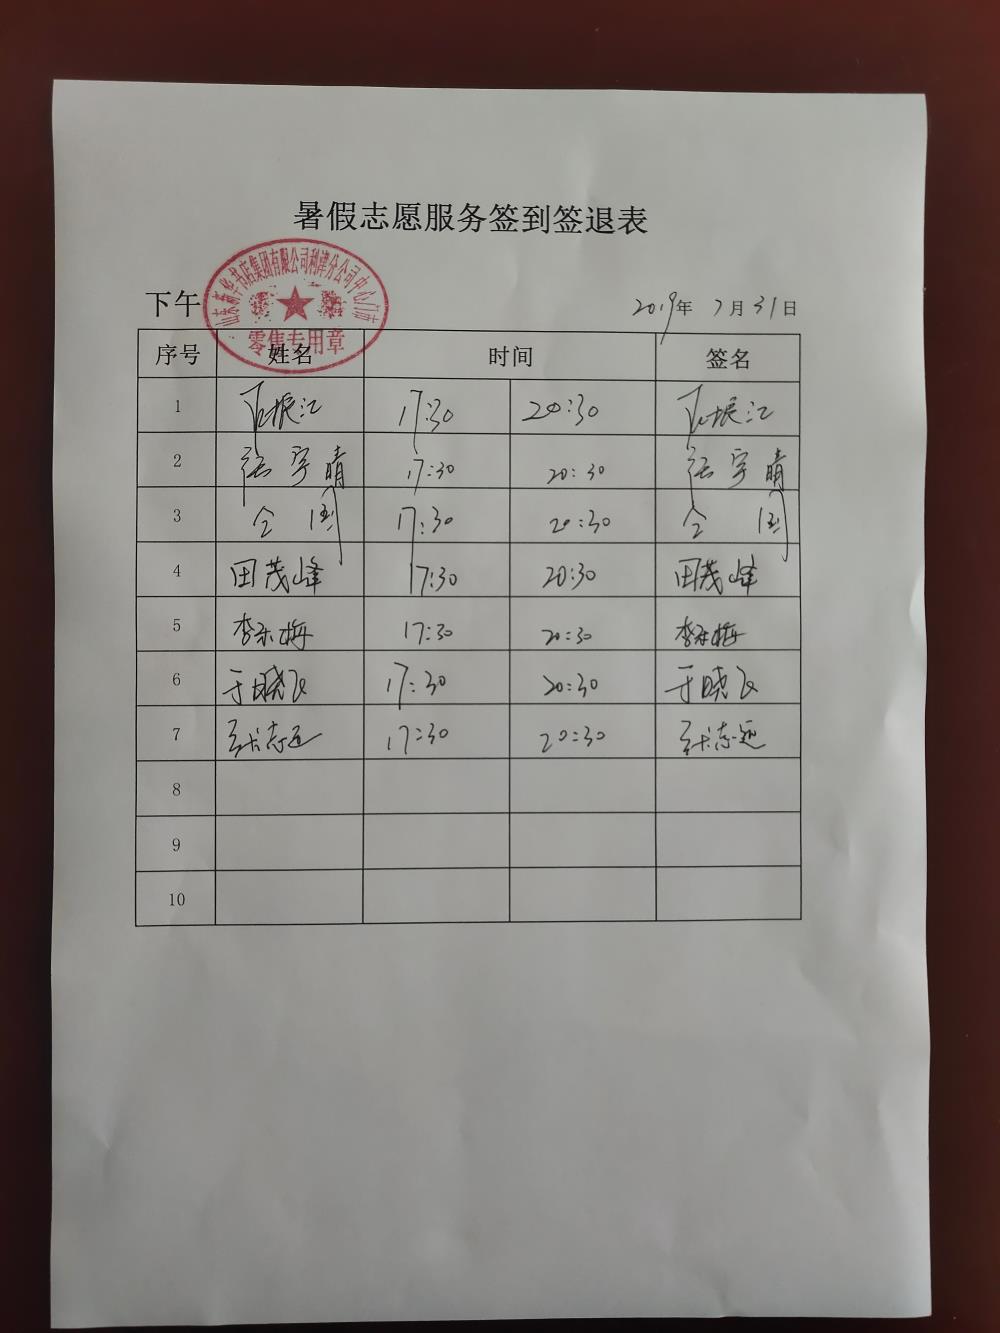 暑假志愿服务签到签退表
山东新华书店集团有限公司利津分公司中心门市
零售专用章
下午 2019年 7月31日
序号 姓名 时间 签名
1 振江 17:30 20:30 振江
2 张宇晴 17:30 20:30 张宇晴
3 仝 17:30 20:30 仝
4 田茂峰 17:30 20:30 田茂峰
5 李乐梅 17:30 20:30 李乐梅
6 于晓飞 17:30 20:30 于晓飞
7 张志远 17:30 20:30 张志远
8
9
10